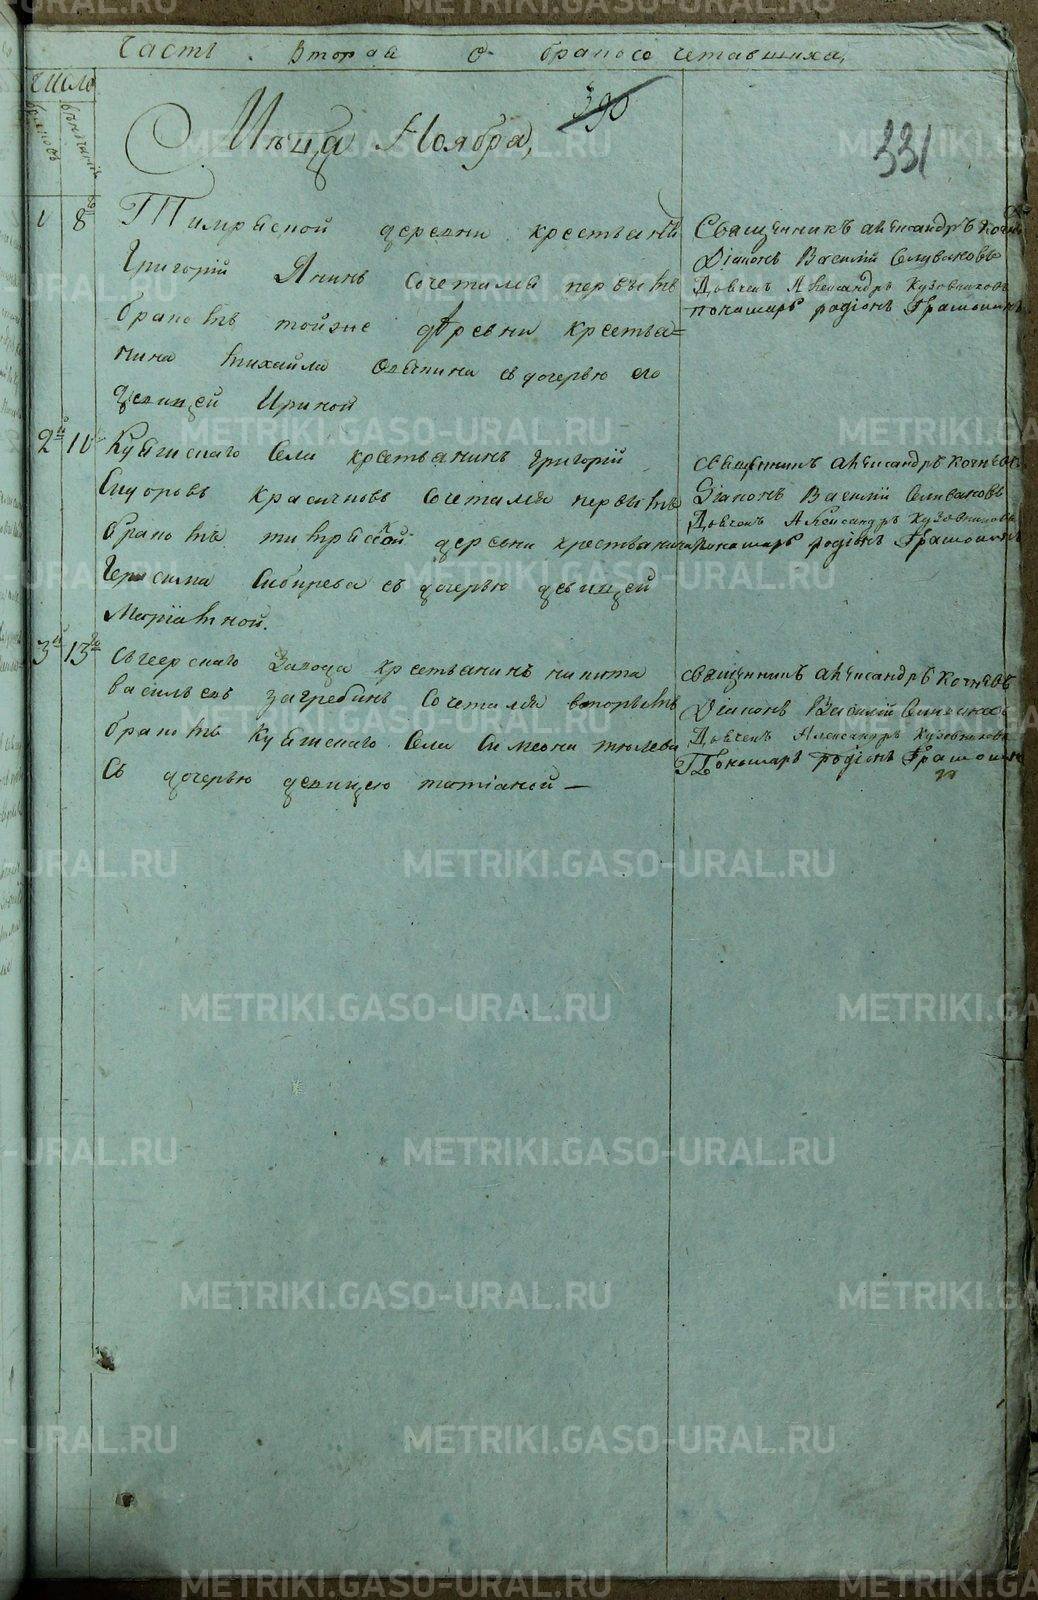 Часть Вторая О бракосочетавшихся,
Число
браковъ
венчанiя
390
331
Мѣсца Ноября,
1 8 Тимрѣской деревни крестьянъ
Григорiй Янинъ сочетался первымъ
бракомъ тойже деревни крестья=
нина Михайла съ дочерью его
девицей Ириной
Священникъ Александръ Кочневъ
Дiаконъ Василiй Селивановъ
Дьячекъ Александръ Кузовниковъ
Пономарь Родiонъ Грамолинъ
2й 10 села крестьянинъ Григорiй
Сидоровъ Красичковъ сочетался первымъ
бракомъ деревни крестьянина
Герасима Сибирева съ дочерью девицей
Марiамной.
священникъ Александръ Кочневъ
Дiаконъ Василiй Селивановъ
Дьячекъ Александръ Кузовниковъ
Пономарь Родiонъ Грамолинъ
3й 13го завода крестьянинъ Никита
Васильевъ Загребинъ сочетался вторымъ
бракомъ села Симеона Тюлева
съ дочерью девицею Татiаной —
священникъ Александръ Кочневъ
Дiаконъ Василiй Селивановъ
Дьячекъ Александръ Кузовниковъ
Пономарь Родiонъ Грамолинъ
METRIKI.GASO-URAL.RU